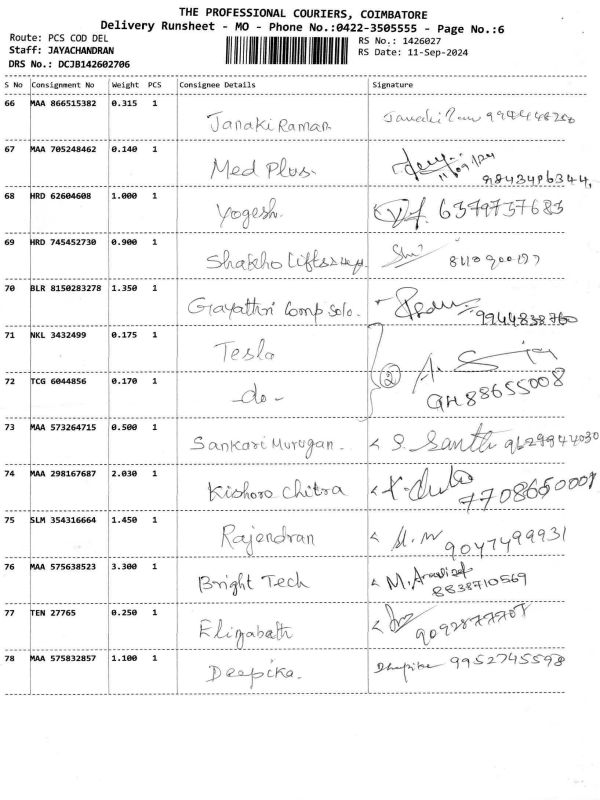 THE PROFESSIONAL COURIERS, COIMBATORE
Delivery Runsheet - MO - Phone No.:0422-3505555 - Page No.:6
Route: PCS COD DEL
RS No.: 1426027
Staff: JAYACHANDRAN
RS Date: 11-Sep-2024
DRS No.: DCJB142602706
S No Consignment No Weight PCS Consignee Details Signature
66 MAA 866515382 0.315 1
Janaki Raman
67 MAA 705248462 0.140 1
Med Plus. 11/09/24
9843406344,
68 HRD 62604608 1.000 1
Yogesh. 6379737683
69 HRD 745452730 0.900 1
Shakho Lifts
70 BLR 8150283278 1.350 1
Gayathri Comp Solo. 9944838760
71 NKL 3432499 0.175 1
Tesla
72 TCG 6044856 0.170 1 2
-do- 88655008
73 MAA 573264715 0.500 1
Sankari Murugan. S. Santhi 9629944030
74 MAA 298167687 2.030 1
Kishore Chitra 7708650008
75 SLM 354316664 1.450 1
Rajendran 9047499931
76 MAA 575638523 3.300 1
Bright Tech M. 8838710569
77 TEN 27765 0.250 1
Elizabath
78 MAA 575832857 1.100 1
Deepika. Dheepika 9952745598